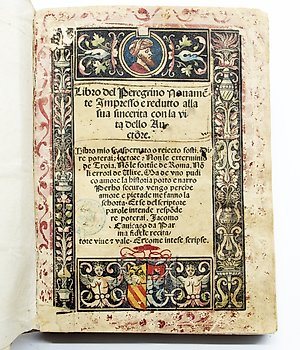 Libro del Peregrino Nouamē
te Impresso e redutto alla
sua sincerita con la vi
ta dello Au
ctōre.
Libro mio se spernato o reiecto fosti. Di
re poterai: lectore: Non le exterminio
de Troia. Nō le fortūe de Roma. Nō
li errori de Ulixe. Ma de vno pudi
co amore la historia porto e narro
Per ho securo vengo perche
amore e pietade me fanno la
schorta. Et se del scriptore
parole intende respōde
re poterai. Jacomo
Cauiceo da Par
ma fidele recita
tore viue e vale. Et come intese scripse.